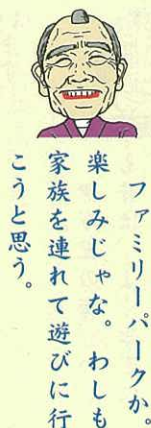 ファミリーパークか。
楽しみじゃな。わしも
家族を連れて遊びに行
こうと思う。